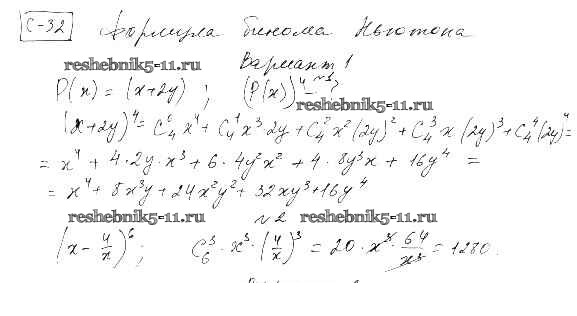 С-32 Формула бинома Ньютона
reshebnik5-11.ru Вариант 1
№1
P(x) = (x+2y) ; (P(x))⁴ - ?
reshebnik5-11.ru
(x+2y)⁴ = C₄⁰x⁴ + C₄¹x³·2y + C₄²x²(2y)² + C₄³·x(2y)³ + C₄⁴(2y)⁴ =
= x⁴ + 4·2y·x³ + 6·4y²x² + 4·8y³x + 16y⁴ =
= x⁴ + 8x³y + 24x²y² + 32xy³ + 16y⁴
reshebnik5-11.ru №2 reshebnik5-11.ru
(x - 4/x)⁶ ; C₆³·x³·(4/x)³ = 20·x³·64/x³ = 1280.